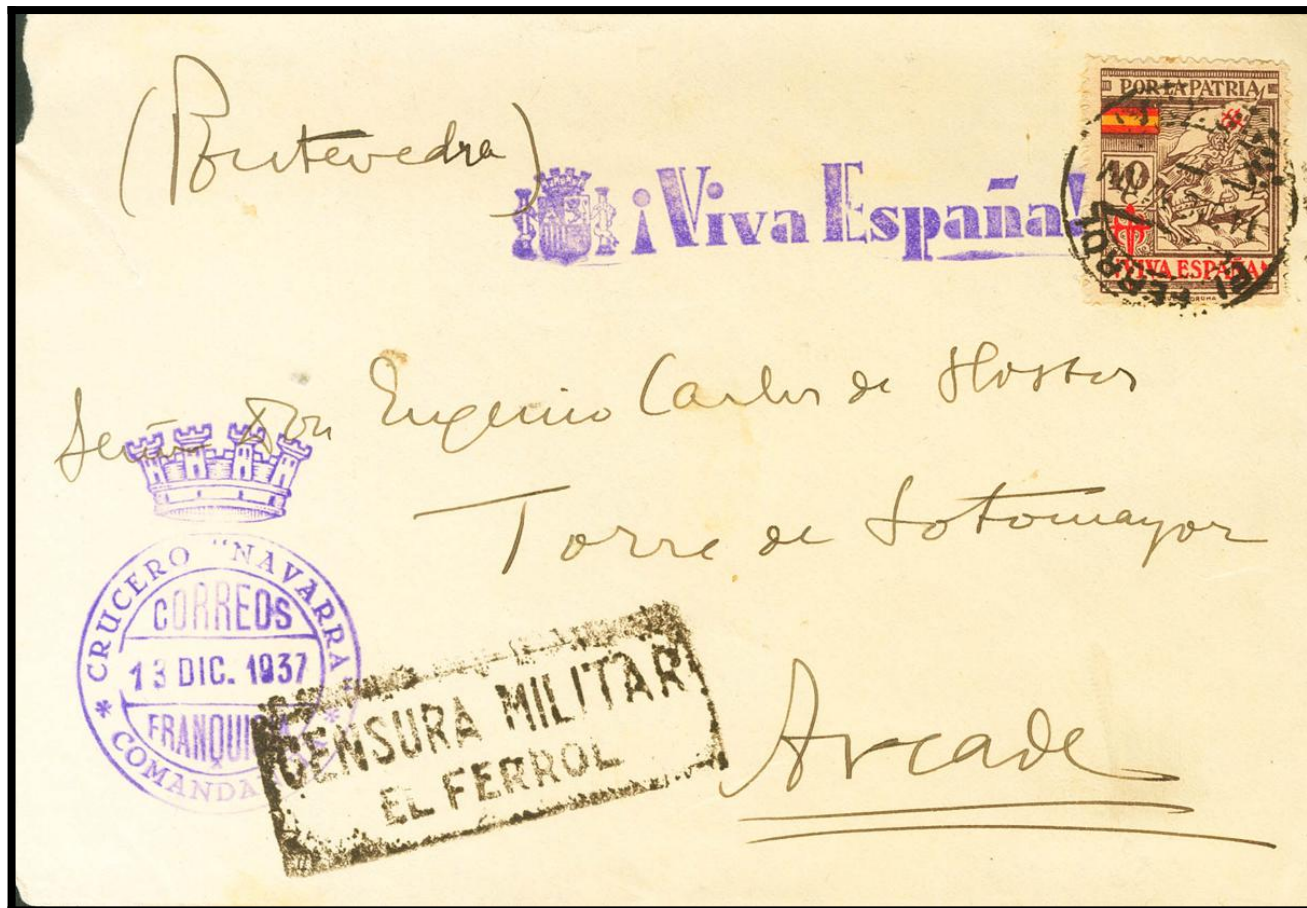 (Pontevedra)
¡Viva España!
POR LA PATRIA
10
¡VIVA ESPAÑA!
EL FERROL
Señor Don Eugenio Carlos de Hostos
Torre de Sotomayor
Arcade
CRUCERO "NAVARRA"
CORREOS
13 DIC. 1937
FRANQUICIA
COMANDA
CENSURA MILITAR
EL FERROL